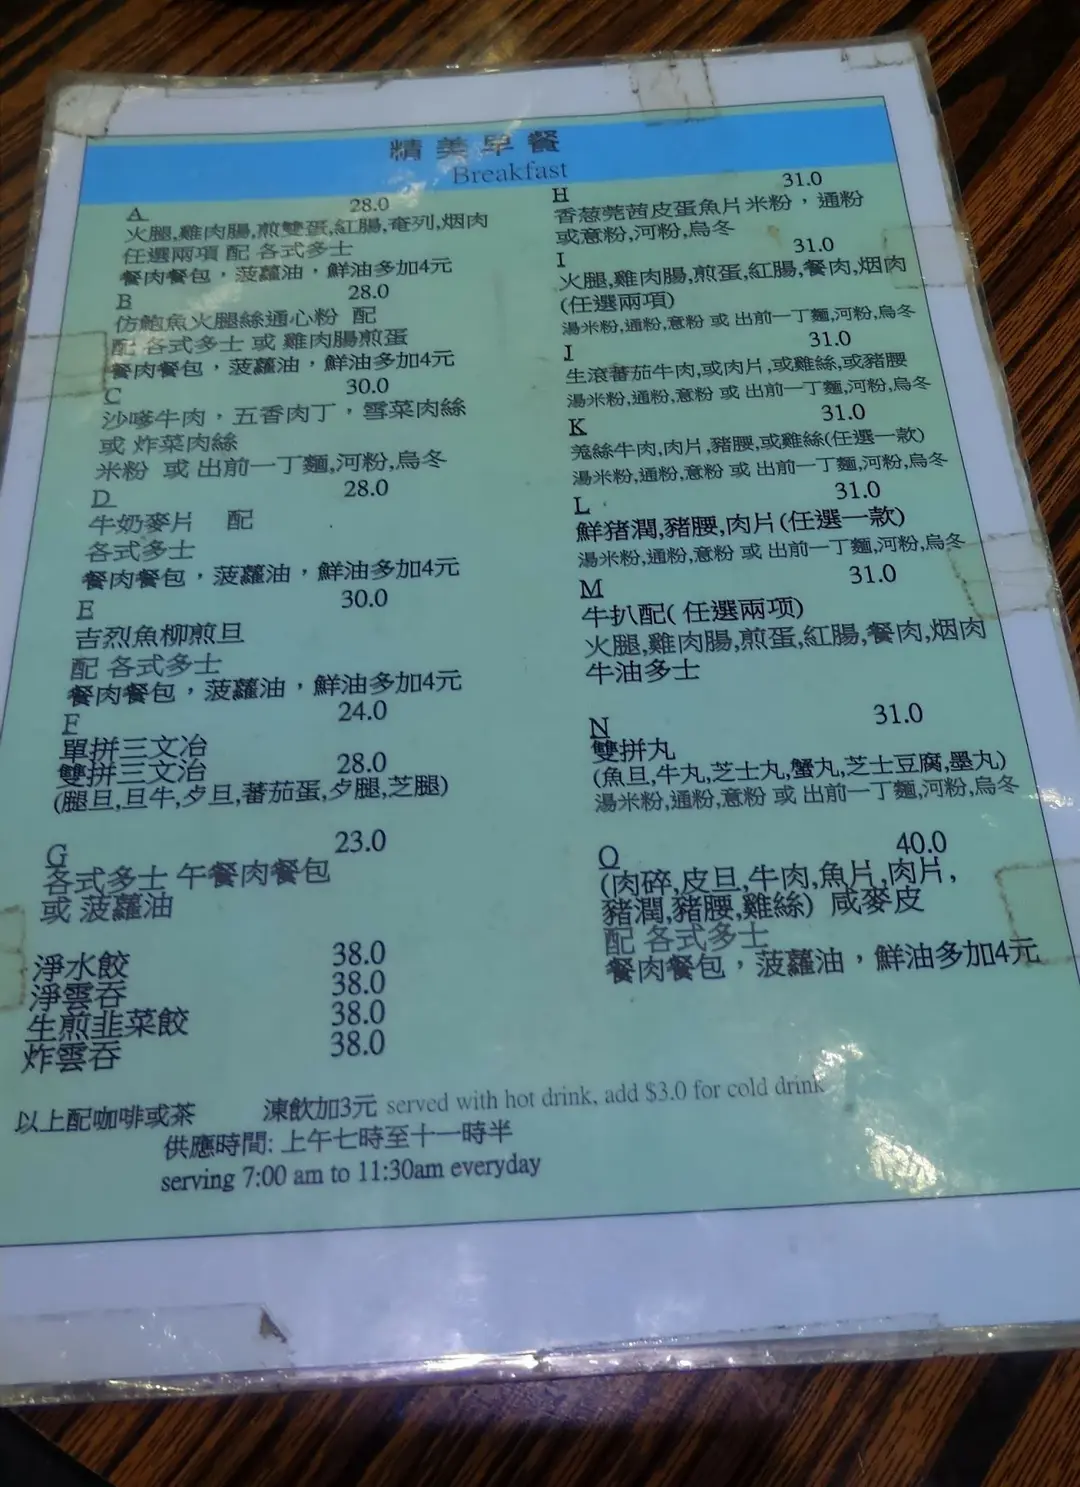 精美早餐
Breakfast
A 28.0
火腿,雞肉腸,煎雙蛋,紅腸,奄列,烟肉
任選兩項 配 各式多士
餐肉餐包，菠蘿油，鮮油多加4元
B 28.0
仿鮑魚火腿絲通心粉 配
配 各式多士 或 雞肉腸煎蛋
餐肉餐包，菠蘿油，鮮油多加4元
C 30.0
沙嗲牛肉，五香肉丁，雪菜肉絲
或 炸菜肉絲
米粉 或 出前一丁麵,河粉,烏冬
D 28.0
牛奶麥片 配
各式多士
餐肉餐包，菠蘿油，鮮油多加4元
E 30.0
吉烈魚柳煎旦
配 各式多士
餐肉餐包，菠蘿油，鮮油多加4元
F 24.0
單拼三文冶
雙拼三文冶 28.0
(腿旦,旦牛,夕旦,蕃茄蛋,夕腿,芝腿)
G 23.0
各式多士 午餐肉餐包
或 菠蘿油
淨水餃 38.0
淨雲吞 38.0
生煎韭菜餃 38.0
炸雲吞 38.0
H 31.0
香葱莞茜皮蛋魚片米粉，通粉
或意粉,河粉,烏冬
I 31.0
火腿,雞肉腸,煎蛋,紅腸,餐肉,烟肉
(任選兩項)
湯米粉,通粉,意粉 或 出前一丁麵,河粉,烏冬
J 31.0
生滾蕃茄牛肉,或肉片,或雞絲,或豬腰
湯米粉,通粉,意粉 或 出前一丁麵,河粉,烏冬
K 31.0
羗絲牛肉,肉片,豬腰,或雞絲(任選一款)
湯米粉,通粉,意粉 或 出前一丁麵,河粉,烏冬
L 31.0
鮮猪潤,豬腰,肉片(任選一款)
湯米粉,通粉,意粉 或 出前一丁麵,河粉,烏冬
M 31.0
牛扒配( 任選兩项)
火腿,雞肉腸,煎蛋,紅腸,餐肉,烟肉
牛油多士
N 31.0
雙拼丸
(魚旦,牛丸,芝士丸,蟹丸,芝士豆腐,墨丸)
湯米粉,通粉,意粉 或 出前一丁麵,河粉,烏冬
O 40.0
(肉碎,皮旦,牛肉,魚片,肉片,
豬潤,豬腰,雞絲) 咸麥皮
配 各式多士
餐肉餐包，菠蘿油，鮮油多加4元
以上配咖啡或茶 凍飲加3元 served with hot drink, add $3.0 for cold drink
供應時間: 上午七時至十一時半
serving 7:00 am to 11:30am everyday